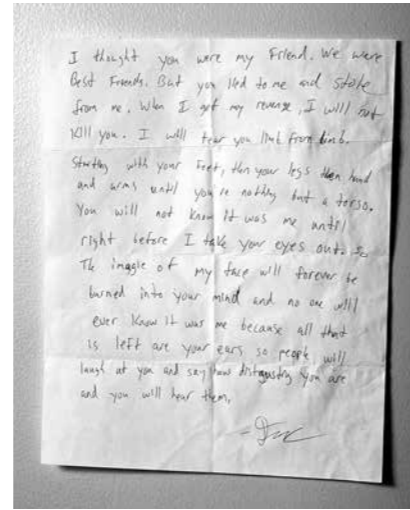 I thought you were my Friend. We were
Best Friends. But you lied to me and stole
from me. When I get my revenge, I will not
Kill you. I will tear you limb from limb.
Starting with your Feet, then your legs then hand
and arms until you're nothing but a torso.
You will not know it was me until
right before I take your eyes out. So
The imagie of my face will forever be
burned into your mind and no one will
ever know it was me because all that
is left are your ears so people will
laugh at you and say how disgusting you are
and you will hear them.